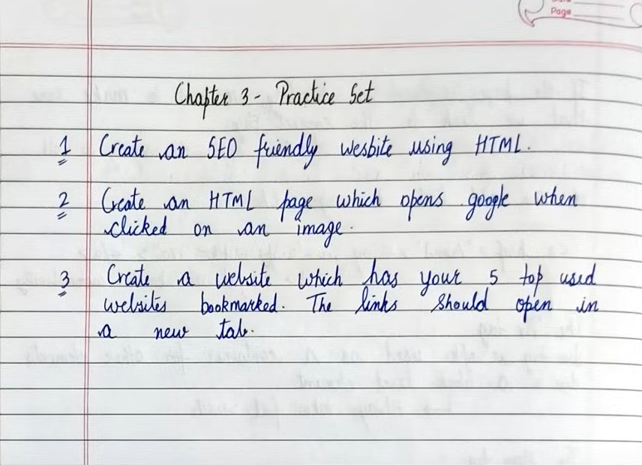 Page
Chapter 3 - Practice Set
1 Create an SEO friendly wesbite using HTML.
2 Create an HTML page which opens google when
clicked on an image.
3 Create a website which has your 5 top used
websites bookmarked. The links should open in
a new tab.